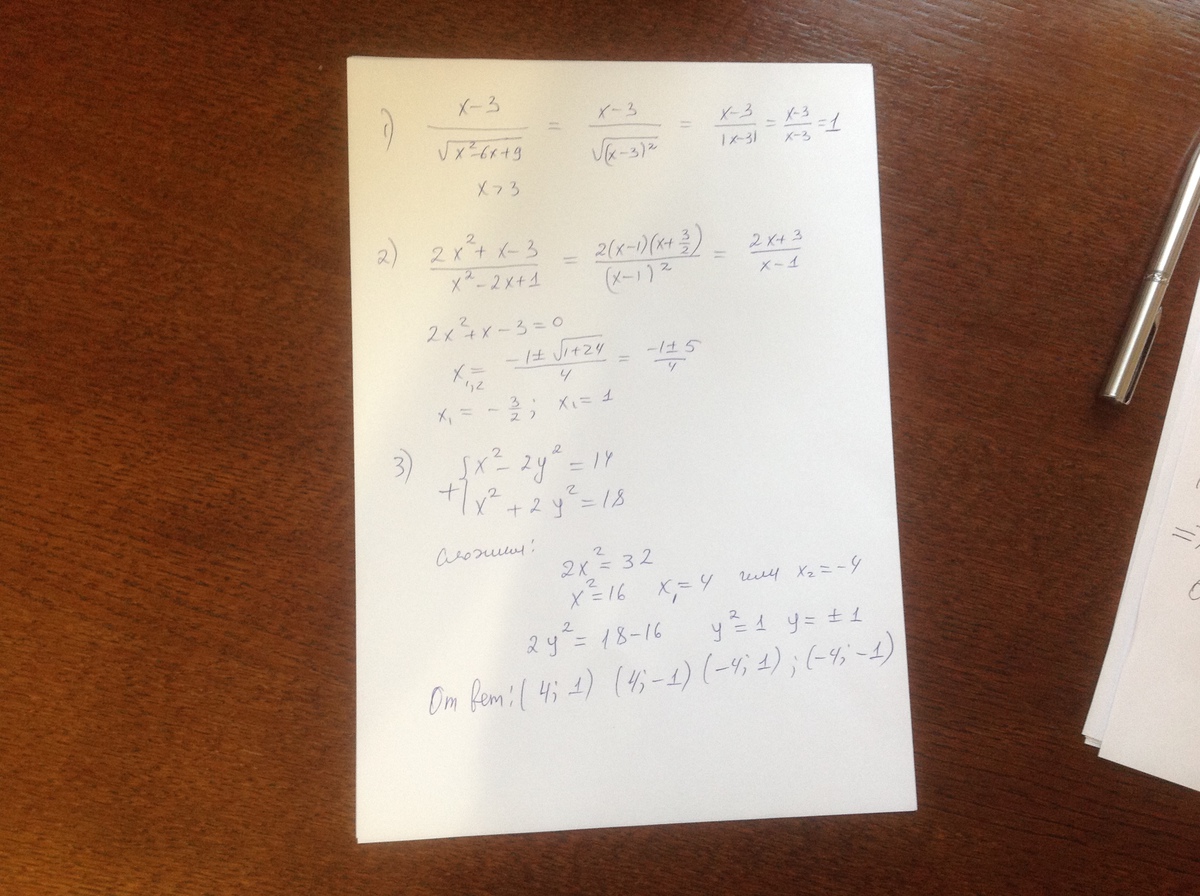 1) x-3 / √x²-6x+9 = x-3 / √(x-3)² = x-3 / |x-3| = x-3 / x-3 = 1
x > 3
2) 2x² + x - 3 / x² - 2x + 1 = 2(x-1)(x+3/2) / (x-1)² = 2x+3 / x-1
2x² + x - 3 = 0
x₁,₂ = -1 ± √1+24 / 4 = -1 ± 5 / 4
x₁ = - 3/2 ; x₁ = 1
3) { x² - 2y² = 14
+ { x² + 2y² = 18
сложим:
2x² = 32
x² = 16 x₁ = 4 или x₂ = -4
2y² = 18-16 y² = 1 y = ± 1
Ответ: (4; 1) (4; -1) (-4; 1) ; (-4; -1)